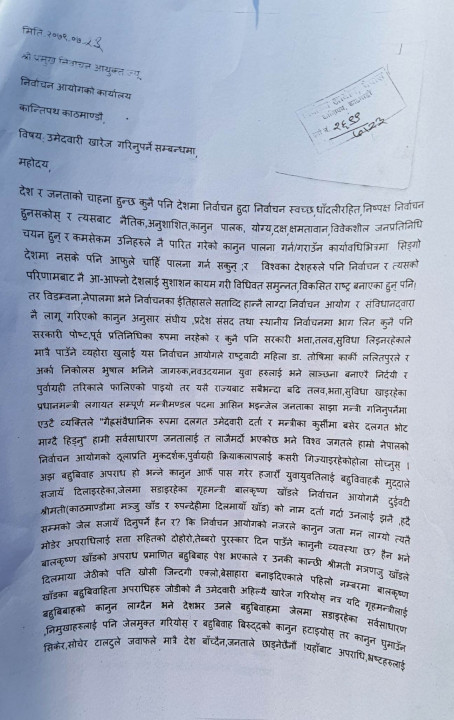 मिति २०७९.०७.२३
श्री प्रमुख निर्वाचन आयुक्त ज्यू
निर्वाचन आयोगको कार्यालय
कान्तिपथ काठमाण्डौ,
विषय: उमेदवारी खारेज गरिनुपर्ने सम्बन्धमा,
महोदय,
देश र जनताको चाहना हुन्छ कुनै पनि देशमा निर्वाचन हुदा निर्वाचन स्वच्छ,धाँदलीरहित,निष्पक्ष निर्वाचन
हुनसकोस् र त्यसबाट नैतिक,अनुशाशित,कानुन पालक, योग्य,दक्ष,क्षमतावान्,विवेकशील जनप्रतिनिधि
चयन हुन् र कमसेकम उनिहरुले नै पारित गरेको कानुन पालना गर्न/गराउँन कार्यावधिभित्रमा सिङ्गो
देशमा नसके पनि आफुले चाहिँ पालना गर्न सकुन् ;र विश्वका देशहरुले पनि निर्वाचन र त्यसको
परिणामबाट नै आ-आफ्नो देशलाई सुशाशन कायम गरी विधिवत समुन्नत,विकसित राष्ट्र बनाएका हुन् पनि।
तर विडम्वना,नेपालमा भने निर्वाचनका ईतिहासले सताब्दि हान्नै लाग्दा निर्वाचन आयोग र संविधानद्वारा
नै लागू गरिएको कानुन अनुसार संघीय ,प्रदेश संसद तथा स्थानीय निर्वाचनमा भाग लिन कुनै पनि
सरकारी पोष्ट,पूर्व प्रतिनिधिका रुपमा नरहेको र कुनै पनि सरकारी भत्ता,तलव,सुविधा लिइनरहेकाले
मात्रै पाउँने व्यहोरा खुलाई यस निर्वाचन आयोगले राष्ट्रवादी महिला डा. तोषिमा कार्की ललितपुरले र
अर्का निकोलस भुषाल भनिने जागरुक,नवउदयमान युवा हरुलाई भने लाञ्छना बनाएरै निर्दयी र
पुर्वाग्रही तरिकाले फालिएको पाइयो तर यसै राज्यबाट सबैभन्दा बढि तलव,भत्ता,सुविधा खाइरहेका
प्रधानमन्त्री लगायत सम्पूर्ण मन्त्रीमण्डल पदमा आसिन भइन्जेल जनताका साझा मन्त्री गनिनुपर्नेमा
एउटै व्यक्तिले "गैह्रसंवैधानिक रुपमा दलगत उमेदवारी दर्ता र मन्त्रीका कुर्सीमा बसेर दलगत भोट
माग्दै हिड्नु" हामी सर्वसाधारण जनतालाई त लाजैमर्दो भएकोछ भने विश्व जगतले हाम्रो नेपालको
निर्वाचन आयोगको ठूलाप्रति मुकदर्शक,पुर्वाग्रही क्रियाकलापलाई कसरी गिज्याइरहेकोहोला सोच्नुस् !
अझ बहुबिवाह अपराध हो भन्ने कानुन आफैं पास गरेर हजारौं युवायुवतिलाई बहुविवाहकै मुद्दाले
सजायँ दिलाइरहेका,जेलमा सडाइरहेका गृहमन्त्री बालकृष्ण खाँडले निर्वाचन आयोगमै दुईवटी
श्रीमती(काठमाण्डौमा मञ्जु खाँड र रुपन्देहीमा दिलमायाँ खाँड) को नाम दर्ता गर्दा उनलाई झनै ,हदै
सम्मको जेल सजायँ दिनुपर्ने हैन र? कि निर्वाचन आयोगको नजरले कानुन जता मन लाग्यो त्यतै
मोडेर अपराधिलाई सत्ता सहितको दोहोरो,तेब्बरो पुरस्कार दिन पाउँने कानुनी व्यवस्था छ? हैन भने
बालकृष्ण खाँडको अपराध प्रमाणित बहुबिबाह पेश भएकाले र उनकी कान्छी श्रीमती मञ्जु खाँडले
दिलमाया जेठीको पति खोसी जिन्दगी एक्लो,बेसाहारा बनाइदिएकाले पहिलो नम्बरमा बालकृष्ण
खाँडका बहुबिवाहिता अपराधिहरु जोडीको नै उमेदवारी अहिल्यै खारेज गरियोस् नत्र यदि गृहमन्त्रीलाई
बहुबिबाहको कानुन लाग्दैन भने देशभर उनले बहुबिवाहमा जेलमा सडाइरहेका सर्वसाधारण
,निमुखाहरुलाई पनि जेलमुक्त गरियोस् र बहुबिवाह बिरुद्दको कानुन हटाइयोस् तर कानुन घुमाउँन
सिकेर,सोचेर टालटुले जवाफले मात्रै देश बाँच्दैन,जनताले छाड्नेछैनौं !यहाँबाट अपराधि,भ्रष्टहरुलाई